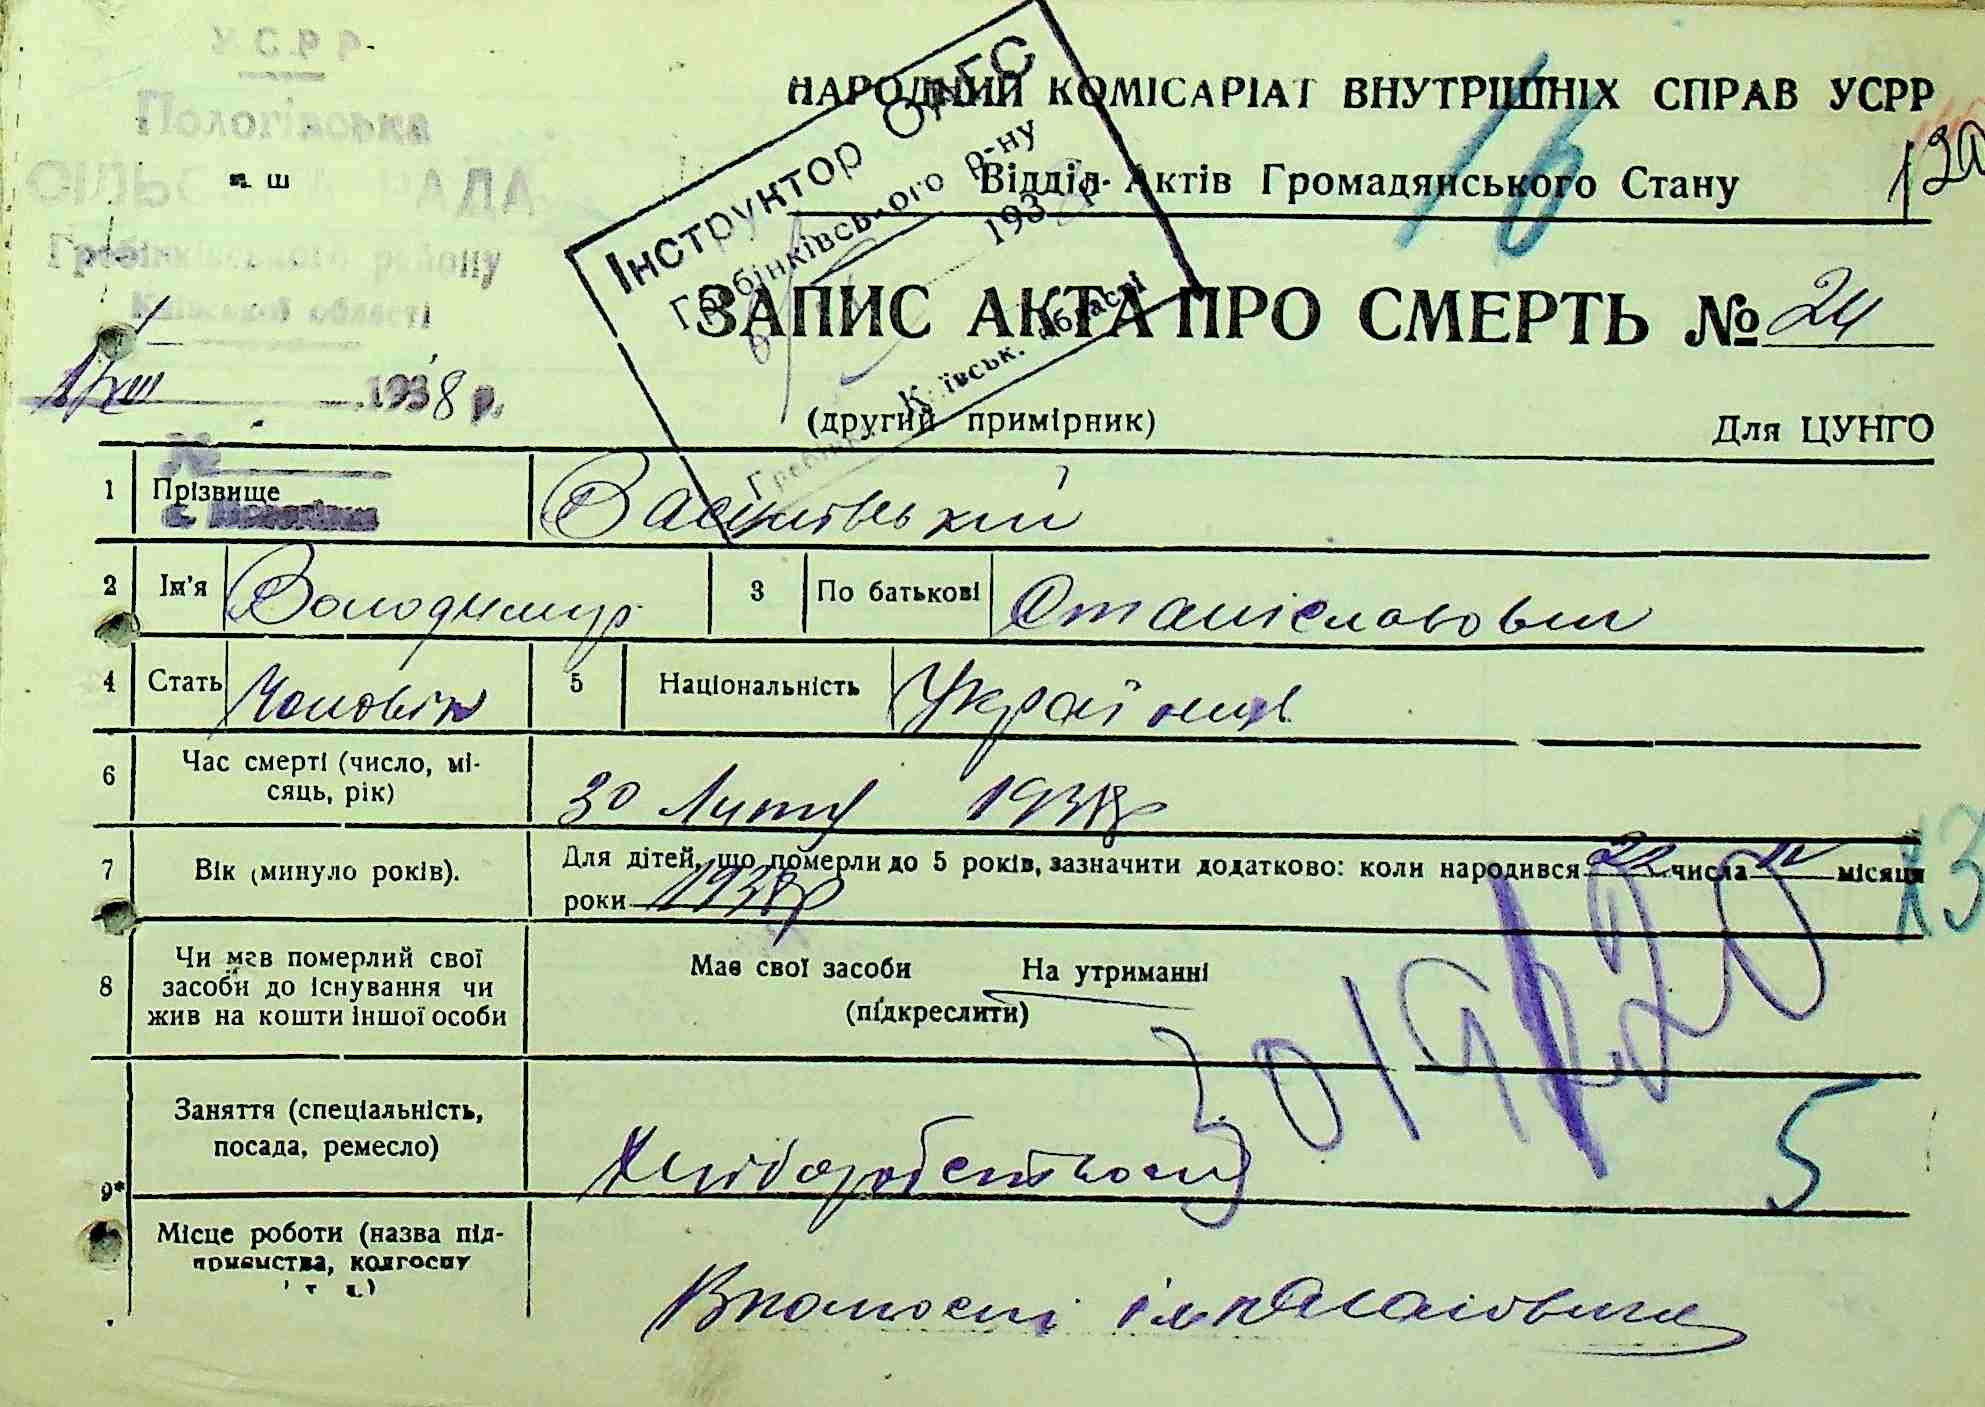 У.С.Р.Р.
Пологівська
СІЛЬСЬКА РАДА
Гребінківського району
Київської області
17/XII 1938 р.
№
Інструктор ОАГС
Гребінківського р-ну
1938 р.
Київськ. області
НАРОДНИЙ КОМІСАРІАТ ВНУТРІШНІХ СПРАВ УСРР
Відділ Актів Громадянського Стану
16
ЗАПИС АКТА ПРО СМЕРТЬ № 24
(другий примірник)
Для ЦУНГО
1 Прізвище
2 Ім'я Володимир 3 По батькові Станіславович
4 Стать Чоловік 5 Національність Українець
6 Час смерті (число, мі-
сяць, рік)
30 Лютий 1938р
7 Вік (минуло років).
Для дітей, що померли до 5 років, зазначити додатково: коли народився 22 числа IV місяця
роки 1938р
13
8 Чи мав померлий свої
засоби до існування чи
жив на кошти іншої особи
Має свої засоби На утриманні
(підкреслити)
5
9*
Заняття (спеціальність,
посада, ремесло)
Місце роботи (назва під-
приємства, колгоспу
і т. д.)
Вколгоспі